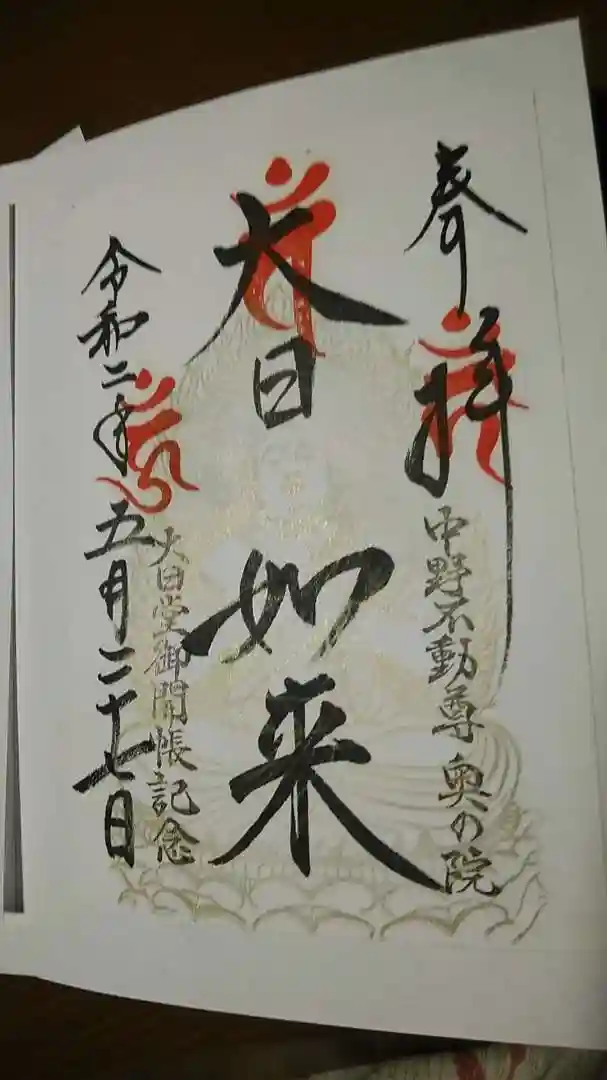 奉拝
中野不動尊 奥の院
大日如来
大日堂御開帳記念
令和二年五月二十七日